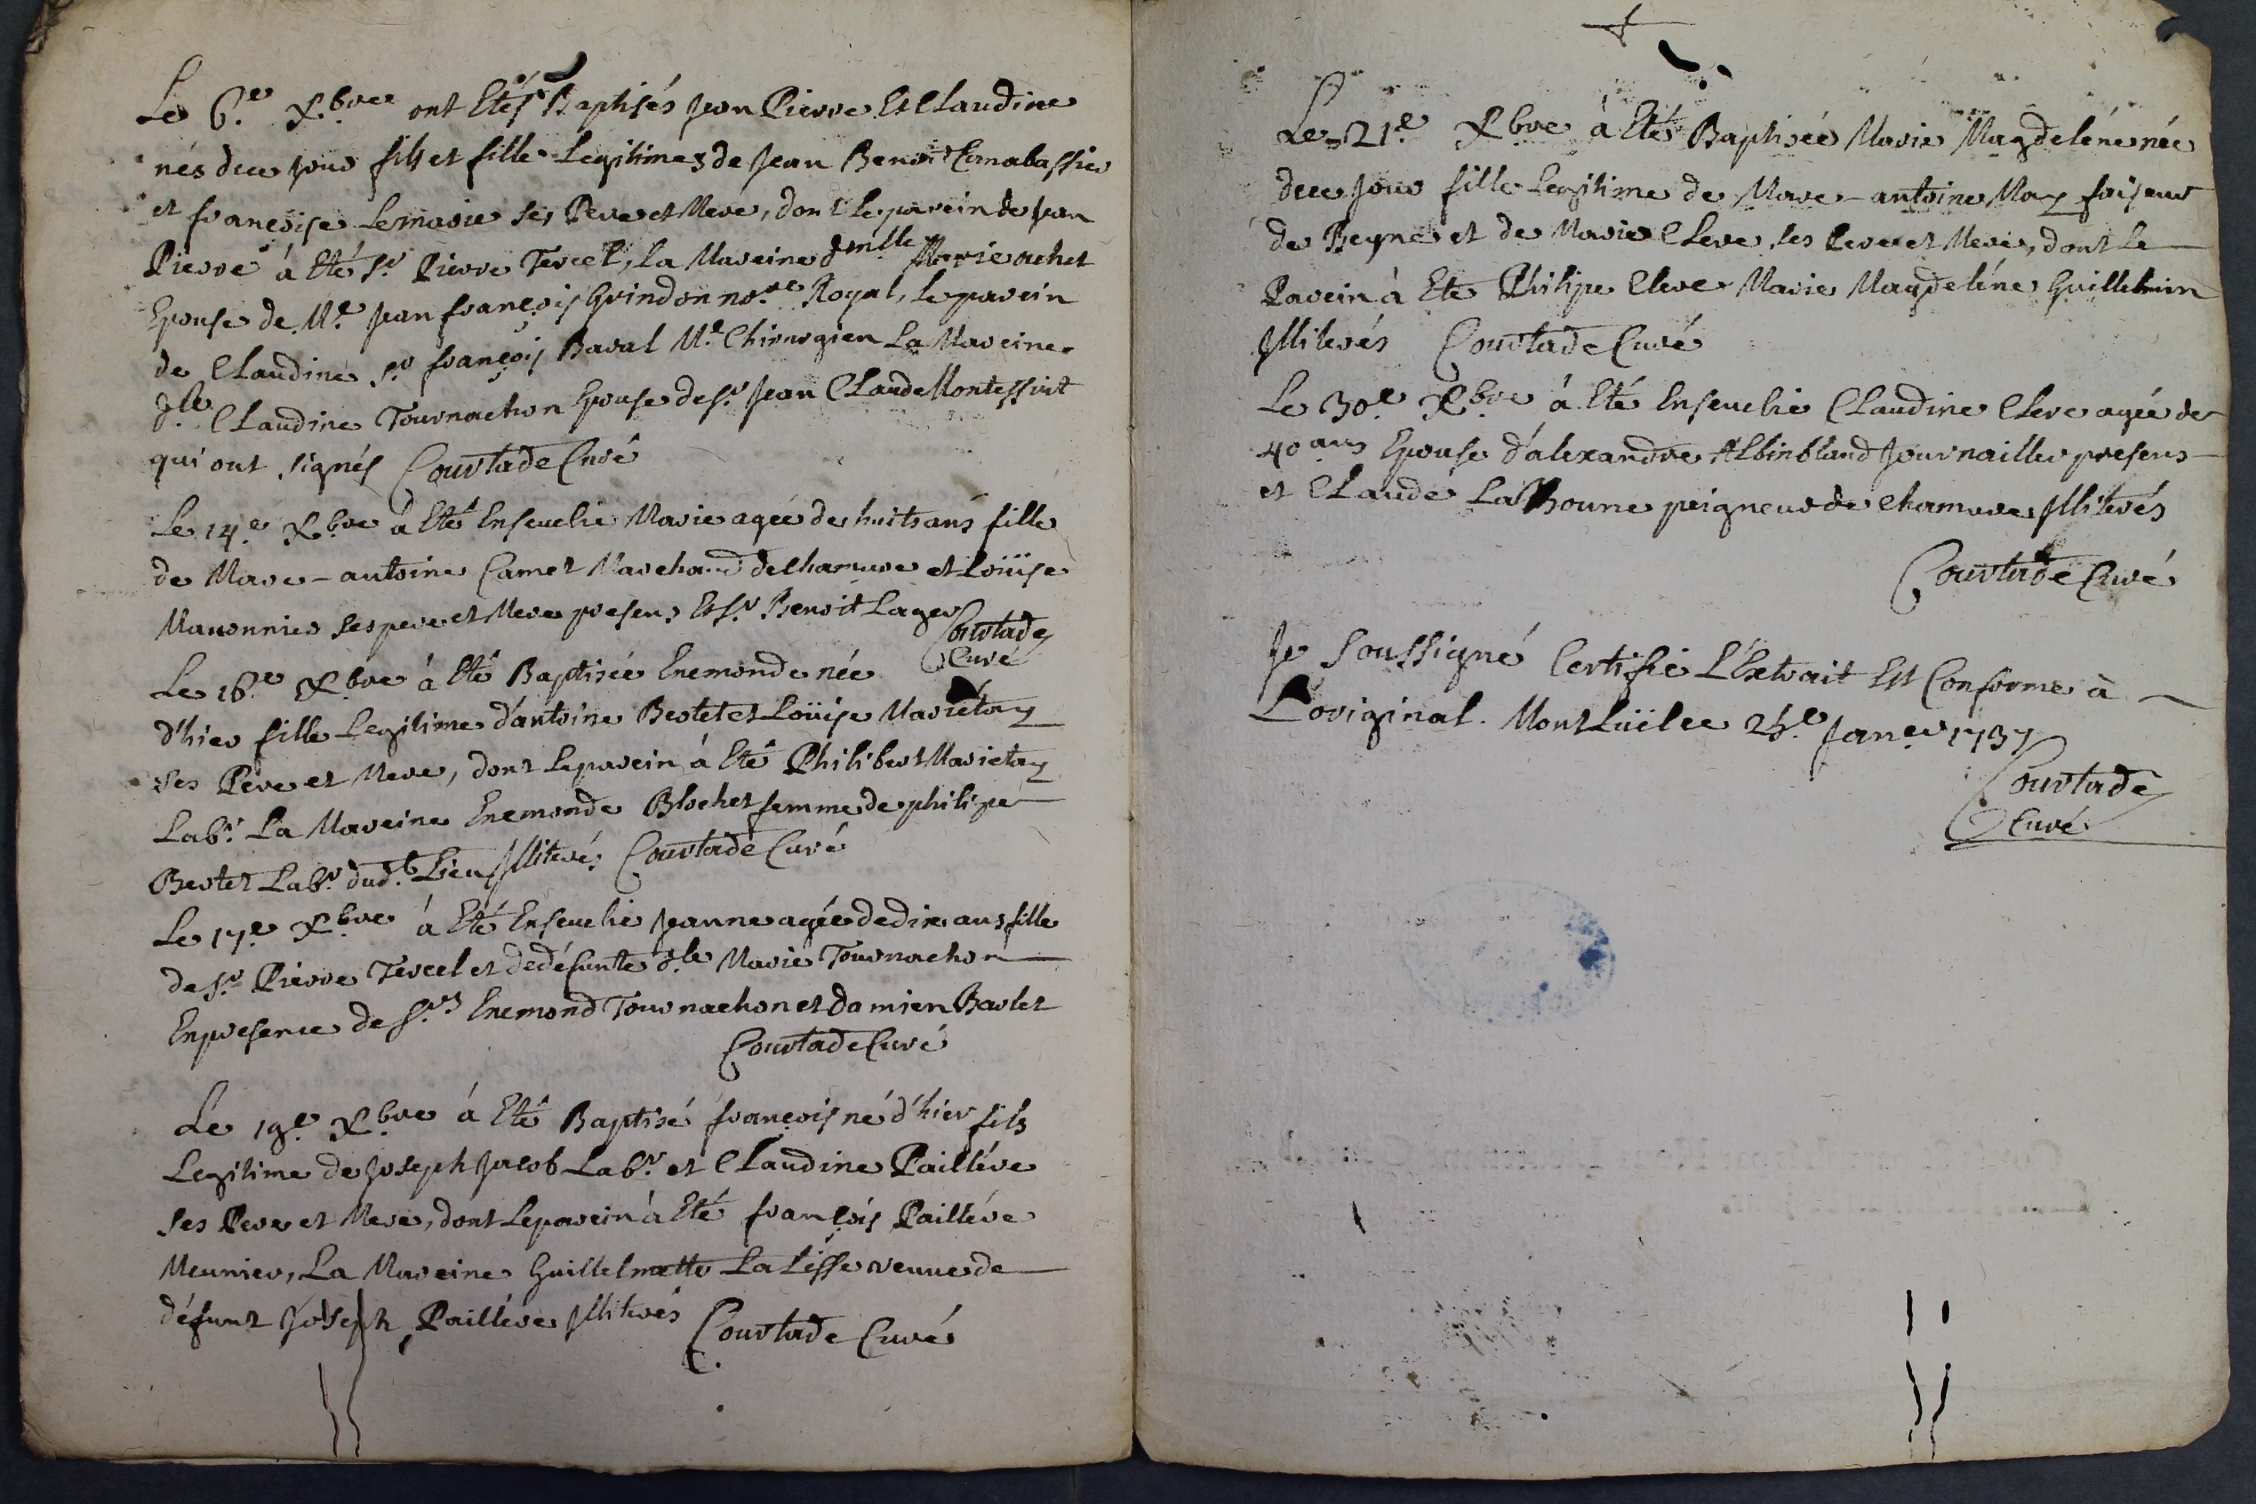 Le 6.e X.bre ont Etés Baptisés Jean Pierre Et Claudine
nés de ce jour fils et fille Legitimes de Jean Benoit
et françoise Lemasie ses Pere et Mere, dont le parein de Jean
Pierre à Eté s.r Pierre Tercet, la Mareine dmlle Marie achet
Epouse de M.e Jean françois Grindon no.re Royal, le parein
de Claudine s.r françois Baral M.e Chirurgien La Mareine
d.lle Claudine Tournachon Epouse de s.r Jean Claude Montessuit
qui ont signés Courtade Curé
Le 14.e X.bre à Eté Enseuelie Marie agée de huits ans fille
de Marc-antoine Camet Marchand de chanure et Loüise
Maronnier ses pere et Mere presens Et s.r Benoit Lager Courtade
Curé
Le 16.e X.bre à Eté Baptisée Enemonde née
d'hier fille Legitime d'antoine Bertet et Loüise Marietay
ses Pere et Mere, dont le parein à Eté Philibert Marietay
Lab.r La Mareine Enemonde Blochet femme de philipe
Bertet Lab.r dud.t Lieu Illiterés Courtade Curé
Le 17.e X.bre à Eté Enseuelie Jeanne agée de dix ans fille
de s.r Pierre Tercel et de défunte d.le Marie Tournachon
En presence de s.rs Enemond Tournachon et Damien Barlet
Courtade Curé
Le 19.e X.bre à Eté Baptisé françois né d'hier fils
Legitime de Joseph Jacob Lab.r et Claudine Paillére
ses Pere et Mere, dont le parein à Eté françois Paillére
Meunier, La Mareine Guillelmette La Lisse veuue de
défunt Joseph Paillére Illiterés Courtade Curé
Le 21.e X.bre à Eté Baptisée Marie Magdeléne née
de ce jour fille Legitime de Marc-antoine May foiseur
de Beyne et de Marie Clere ses Pere et Mere, dont Le
Parein à Eté Philipe Clere Marie Magdeléne Guillelmin
Illiterés Courtade Curé
Le 30.e X.bre à Eté Enseuelie Claudine Clere agée de
40 ans Epouse d'alexandre Journaillier presens
et Claude La Bourne peigneur de chanure Illiterés
Courtade Curé
Je Soussigné Certifie L'Extrait Est Conforme à
L'original. Montlüel ce Jan.er 1737
Courtade
Curé